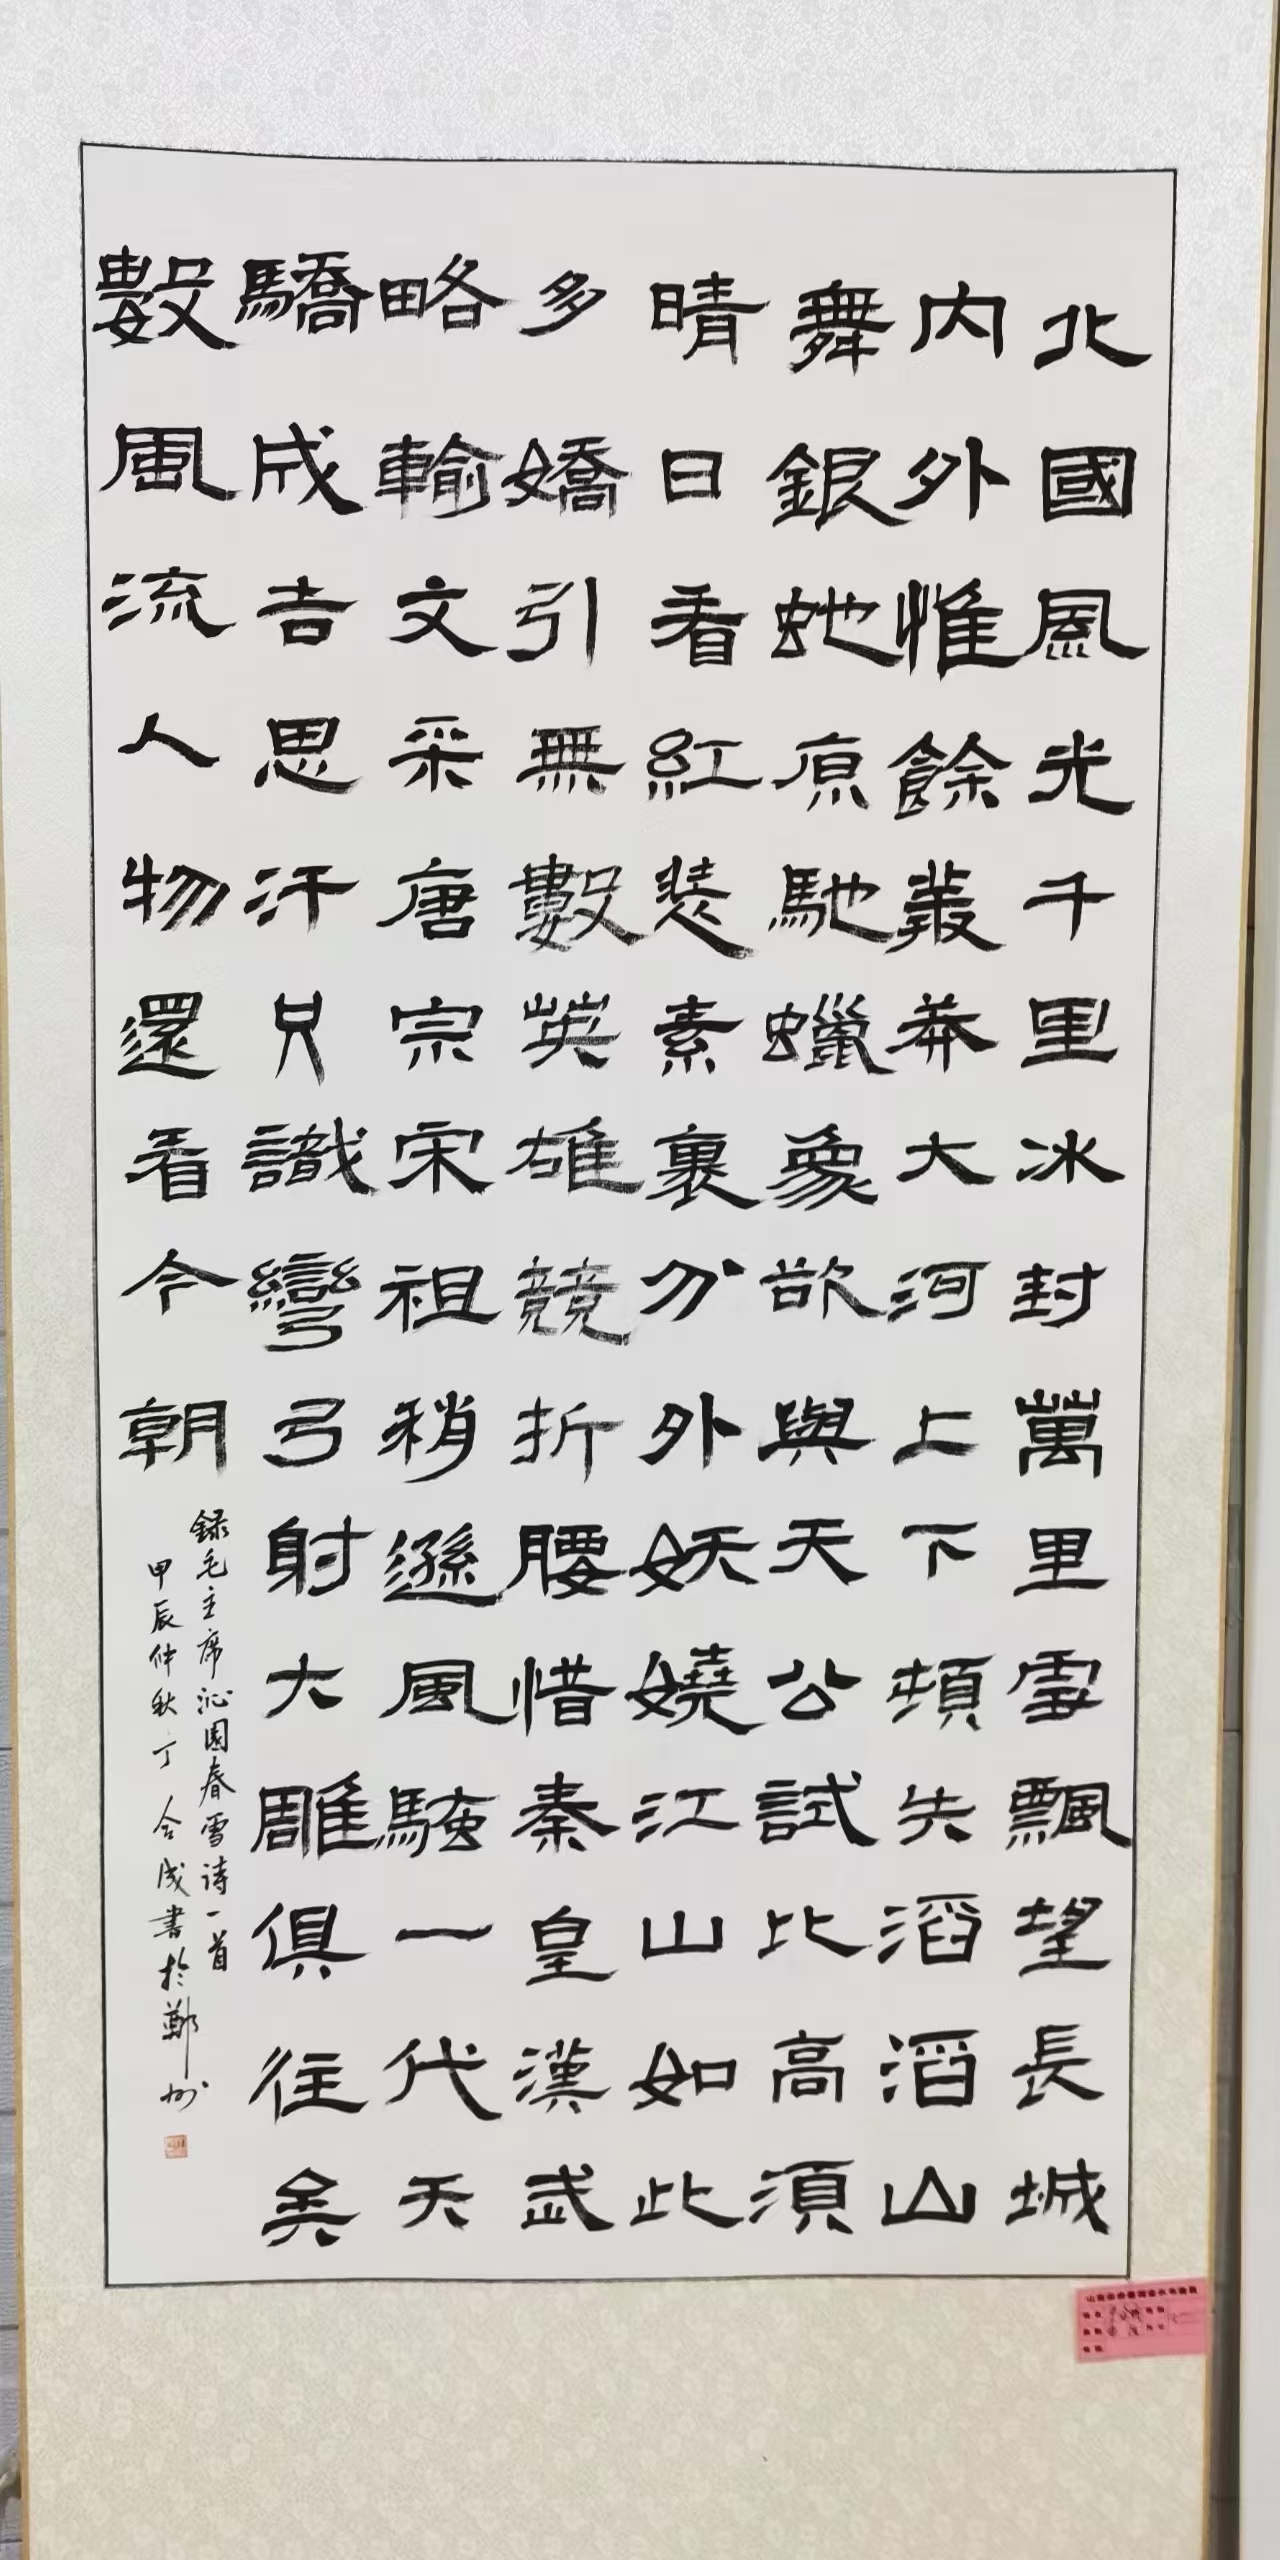 北國風光千里冰封萬里雪飄望長城
内外惟餘叢莽大河上下頓失滔滔山
舞銀蛇原馳蠟象欲與天公試比高須
晴日看紅裝素裹分外妖嬈江山如此
多嬌引無數英雄競折腰惜秦皇漢武
略輸文采唐宗宋祖稍遜風騷一代天
驕成吉思汗只識彎弓射大雕俱往矣
數風流人物還看今朝
録毛主席沁園春雪诗一首
甲辰仲秋丁合成書於鄭州